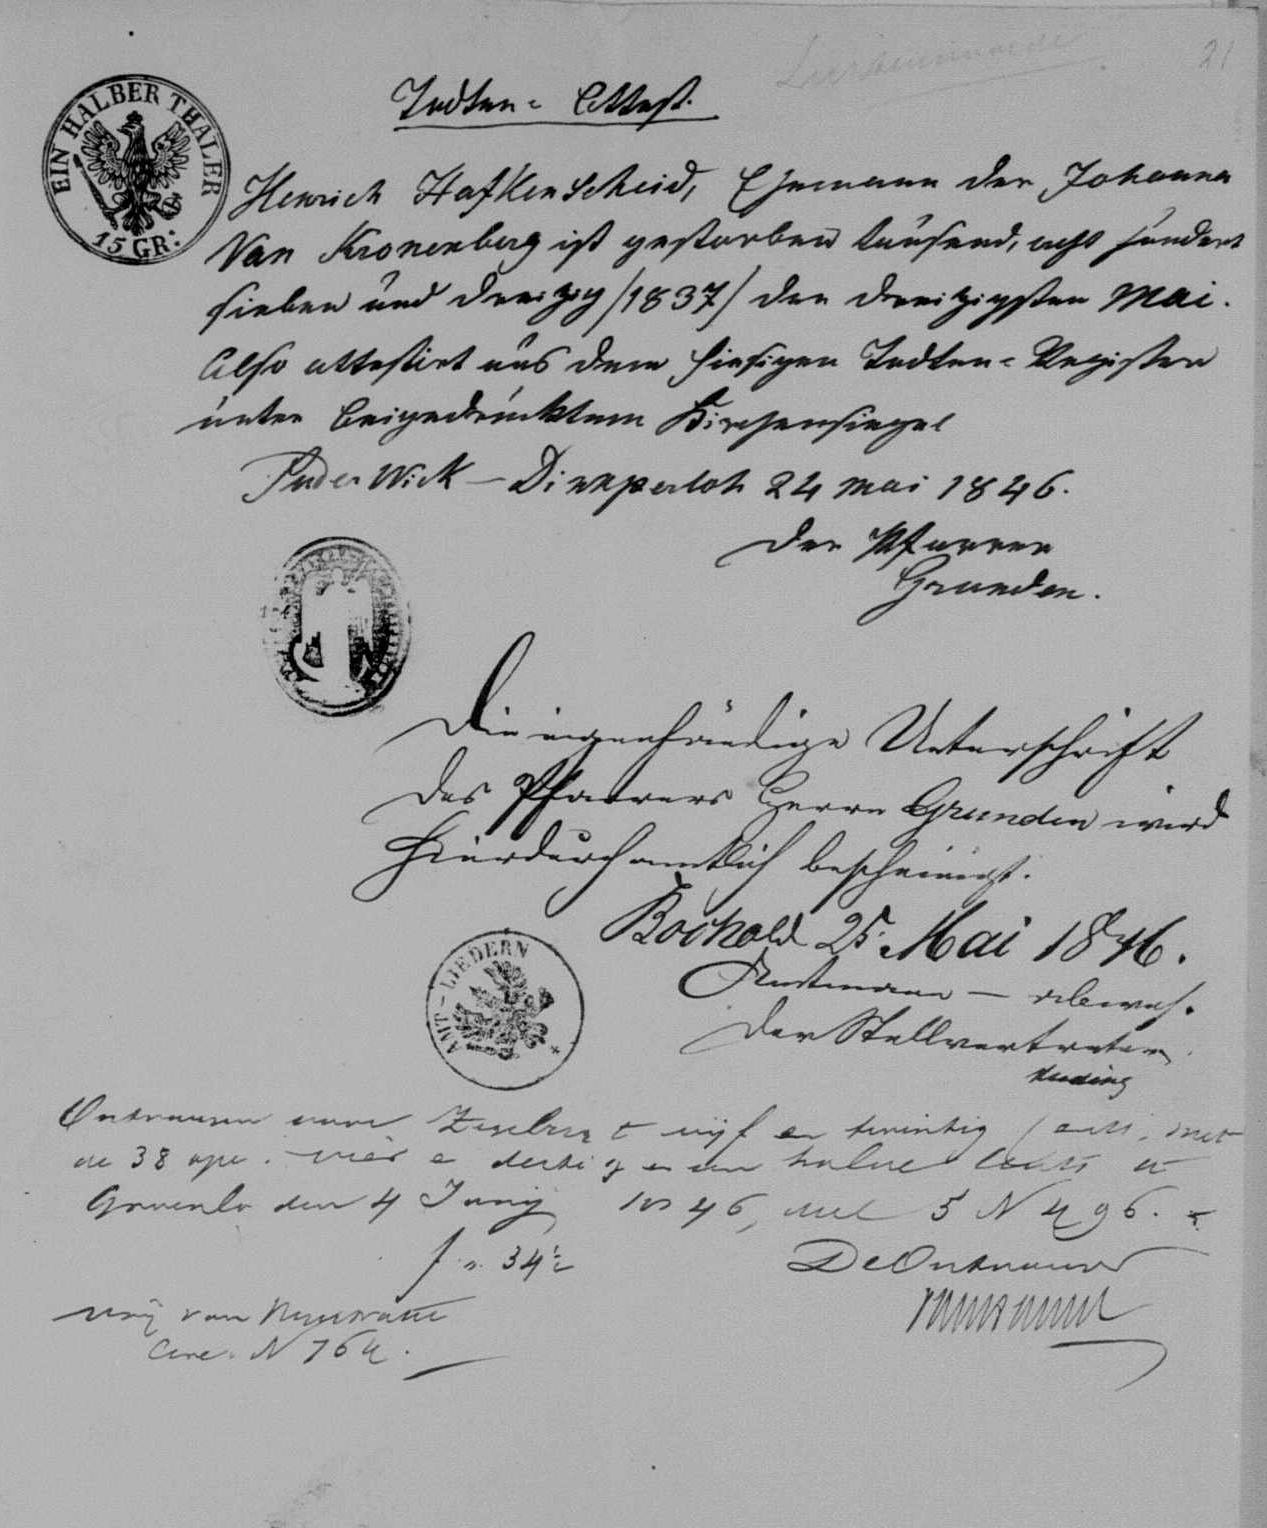 21
EIN HALBER THALER
15 GR:
Todten-Attest.
Henrich Hafkenscheid, Ehemann der Johanna
Van Kronenberg ist gestorben tausend, acht hundert
sieben und dreißig /1837/ den dreißigsten Mai.
Also attestirt aus dem hiesigen Todten-Register
unter beigedrücktem Kirchensiegel
Suderwick - Dinxperloh 24 Mai 1846.
der Pfarrer
Grunden.
Die eigenhändige Unterschrift
des Pfarrers Herrn Grunden wird
hierdurch amtlich bescheinigt.
Bocholt 25. Mai 1846.
AMT-LIEDERN
Amtmann - abwes.
Der Stellvertreter
voor Zegelregt vijf en twintig met
de 38 vier en dertig en een halve Cents te
Groenlo den 4 Junij 1846, deel 5 N 496.
f „ 34½
De Ontvanger
vrij van
N 764.